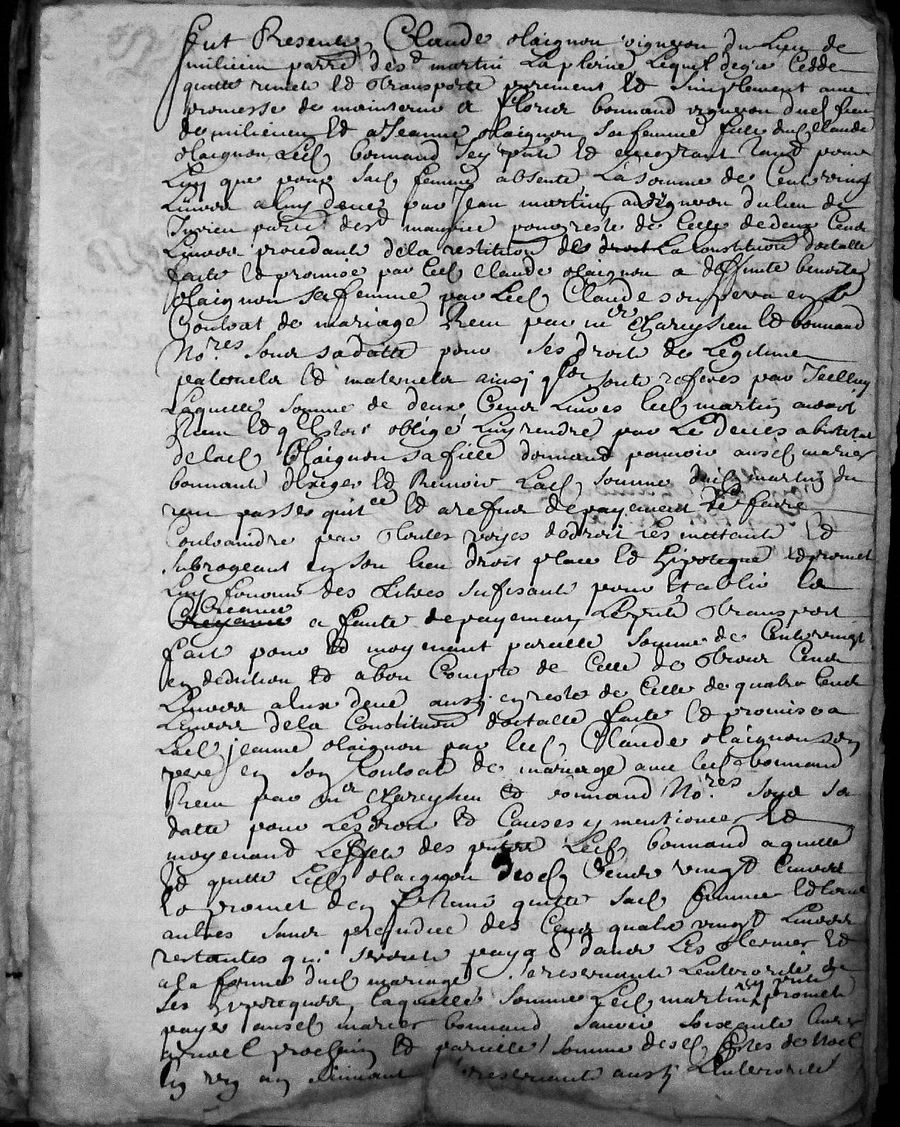 fut Present Claude Olaignon vigneron du Lieu de
milieien parre de st martin La plaine Lequel de gre Cedde
quitte remet Et Transporte purement Et Simplement avec
promesse de maintenir a fleurir bonnand vigneron dud lieu
de milieien Et a Jeanne Olaignon sa femme fille dud Claude
Olaignon Led bonnand Icy pnt Et acceptant tant pour
Luy que pour sad femme absente La somme de Cent vingt
Livres a luy deue par Jean martin vigneron du lieu de
parre de st maurice pour reste de Celle de deux Cent
Livres procedante de la restitution de La Constitution dotalle
faite Et promise par led Claude Olaignon a deffunte benoite
Olaignon sa femme par Led Claude son pere en Le
Contrat de mariage Receu par me Chareyhieu Et bonnand
No.res sous sa datte pour ses droit de Legitime
paternels Et maternels ainsi qlz sont referes par Icelluy
Laquelle somme de deux Cent Livres led martin avoit
Receu Et qlestoit oblige Luy rendre par Le deces
de lad Olaignon sa fille donnand pouvoir ausd maries
bonnand dexiger Et Recevoir Lad somme dud martin du
receu passer quitce Et a refus de payement de faire
Contraindre par Toutes voyes de droit Les mettant Et
Subrogeant en son lieu droit place Et Hipoteque Et promet
Luy fournir des Titres sufisant pour Etablir La
Creance a faute de payement Le pnt Transport
fait pour Et moyenant pareille somme de Cent vingt
en dedution Et a bon Compte de Celle de Trois Cent
Livres a eux deue aussi en reste de Celle de quatre Cent
Livres de la Constitution dotalle faite Et promise a
Lad jeanne Olaignon par led Claude Olaignon son
pere en son Contrat de mariage avec led bonnand
Receu par me Chareyhieu Et bonnand No.res sous sa
datte pour Les droit Et Causes y mentionees Et
moyenand Leffet des Led bonnand a quitte
Et quitte Led Olaignon desd Cent vingt Livres
Et promet den quitte sad femme Et tous
autres sans prejudice des Cent quatre vingt Livres
restantes qui seront paye dans Les Termes Et
a la forme dud mariage se reservant Lanteriorite de
ses ypoteques laquelle somme Led martin icy pnt promet
payer ausd maries bonnand savoir soixante livres
a noel prochain Et pareille somme desd festes de Noel
En un an suivant reservant aussi Lanteriorite